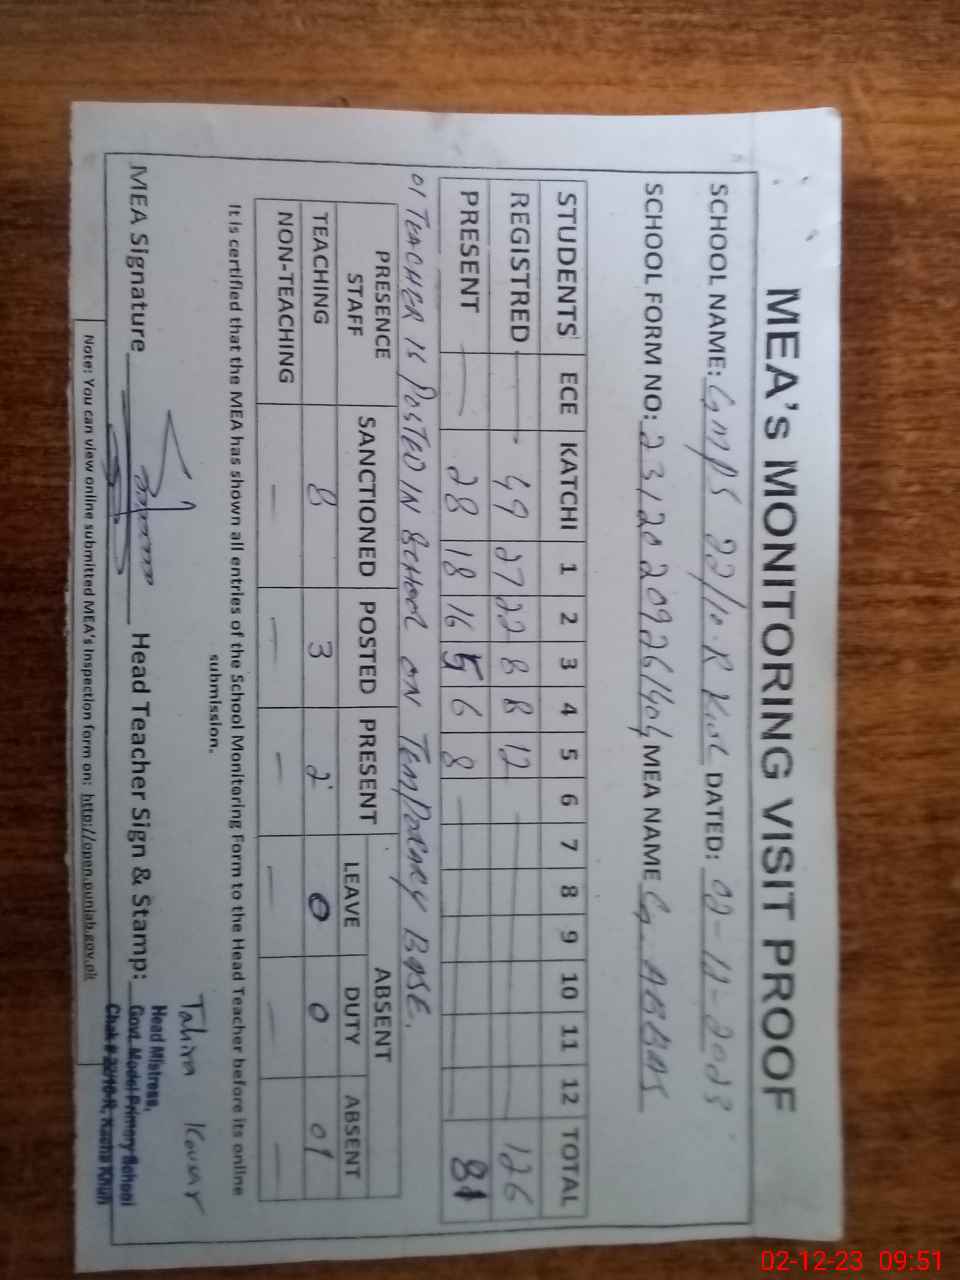 MEA'S MONITORING VISIT PROOF
SCHOOL NAME: GMPS 22/10-R DATED: 02-12-2023
SCHOOL FORM NO: MEA NAME G. ABBAS
STUDENTS ECE KATCHI 1 2 3 4 5 6 7 8 9 10 11 12 TOTAL
REGISTRED — 49 27 22 8 8 12 126
PRESENT — 28 18 16 5 6 8 — 81
01 TEACHER IS POSTED IN SCHOOL ON TEMPORARY BASE.
PRESENCE STAFF SANCTIONED POSTED PRESENT ABSENT
LEAVE DUTY ABSENT
TEACHING 8 3 2 0 0 01
NON-TEACHING — — — — — —
It is certified that the MEA has shown all entries of the School Monitoring Form to the Head Teacher before its online
submission.
Tahira Kousar
MEA Signature Head Teacher Sign & Stamp:
Head Mistress,
Govt. Model Primary School
Chak # 22/10-R, Kacha Khuh
Note: You can view online submitted MEA's Inspection form on: http://open.punjab.gov.pk
02-12-23 09:51